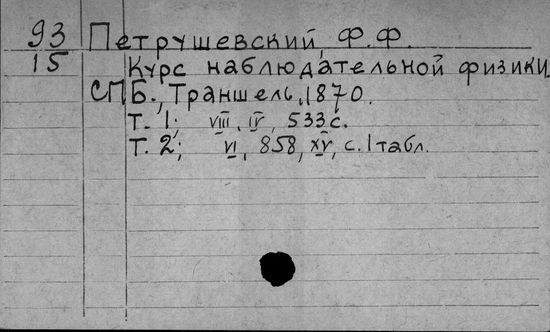 93 Петрушевский, Ф.Ф.
15 Курс наблюдательной физики
СПБ., Траншель, 1870.
Т. 1; VIII, IV, 533 с.
Т. 2; VI, 858, XV, с. 1 табл.